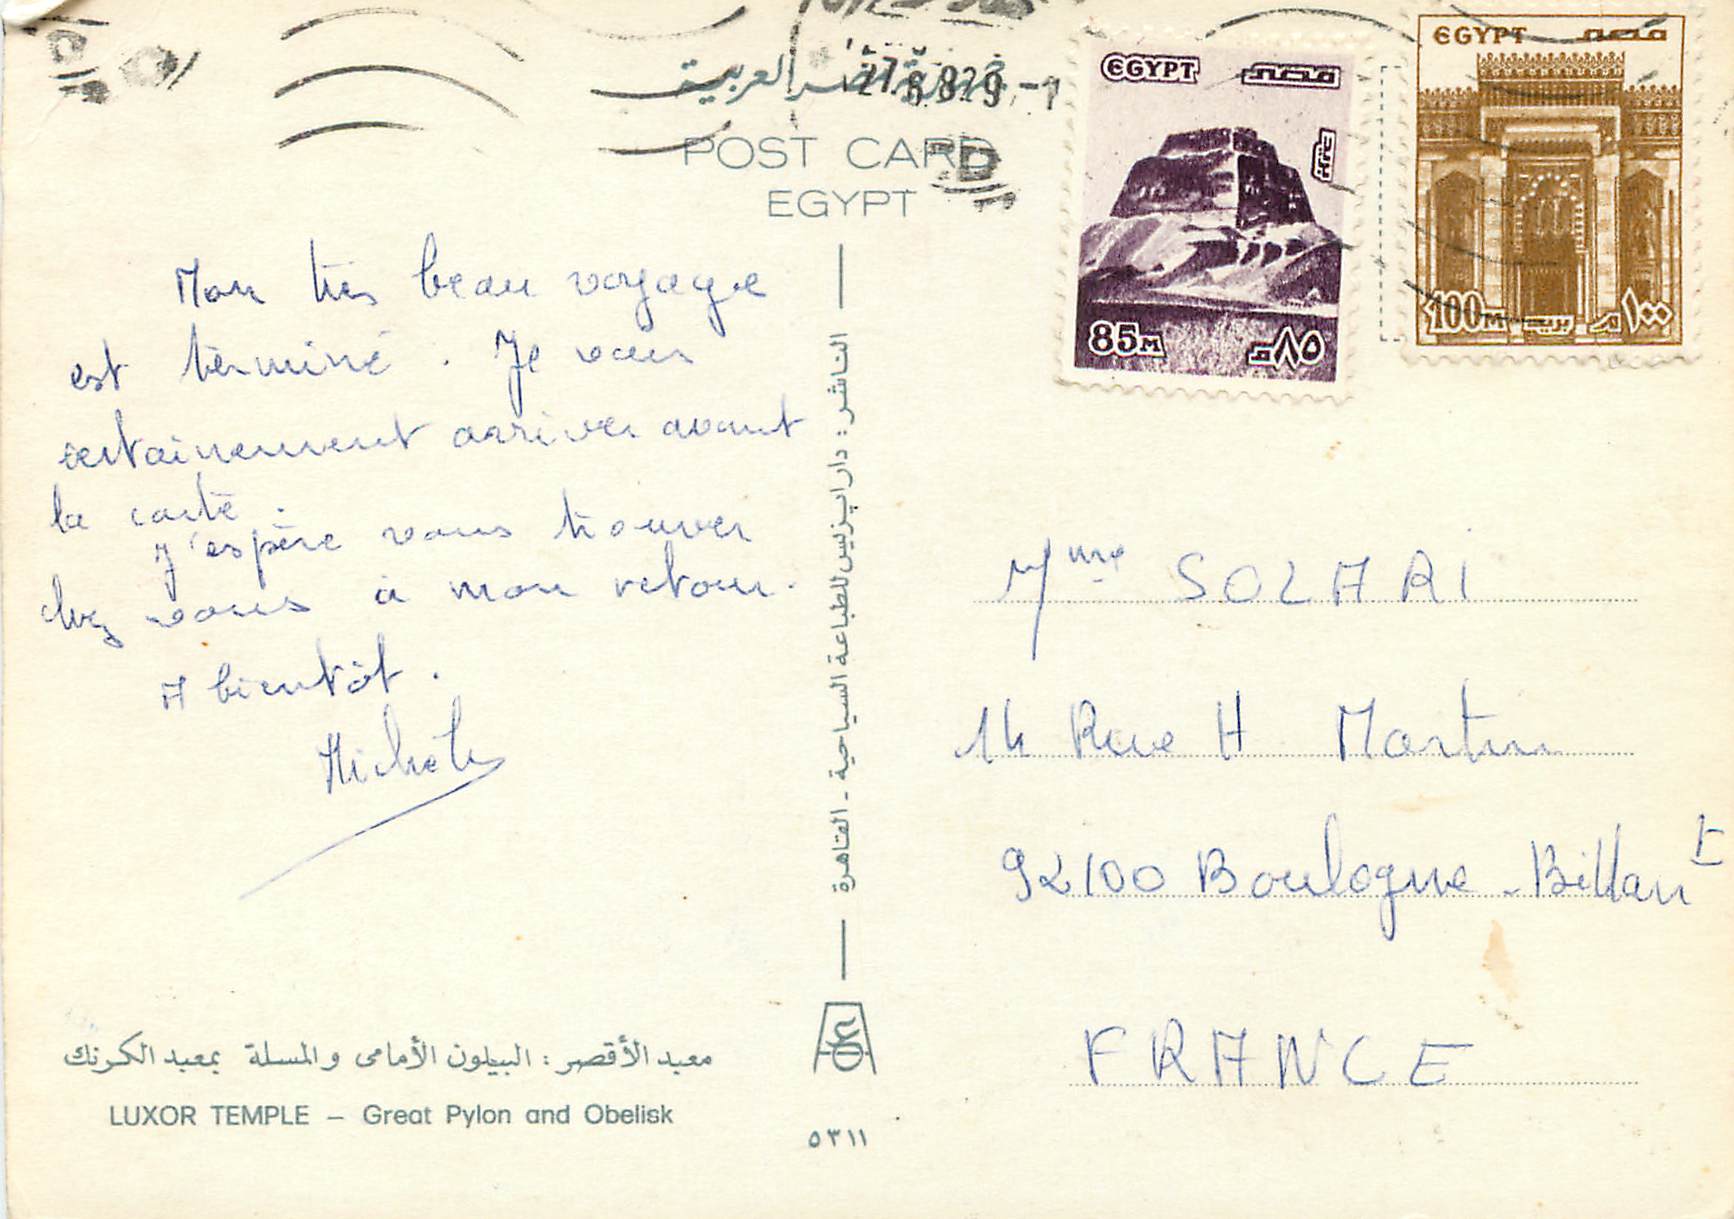 جمهورية مصر العربية
POST CARD
EGYPT
EGYPT
مصر
85M
٨٥ م
EGYPT
مصر
100M
بريد
م ١٠٠
Mon très beau voyage
est terminé. Je vais
certainement arriver avant
la carte.
J'espère vous trouver
chez vous à mon retour.
A bientôt.
Michèle
الناشر : دار ابزيس للطباعة السياحية - القاهرة
Mme SOLARI
14 Rue H Martin
92100 Boulogne - Billant
FRANCE
معبد الأقصر : البيلون الأمامى والمسلة بمعبد الكرنك
LUXOR TEMPLE – Great Pylon and Obelisk
٥٣١١